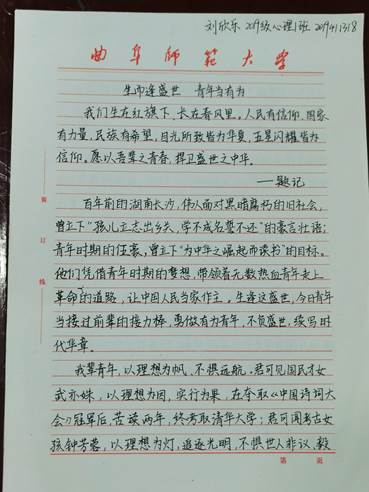 刘欣乐 2019级心理1班 2019411318
曲阜师范大学
生而逢盛世 青年当有为
我们生在红旗下，长在春风里。人民有信仰，国家
有力量，民族有希望，目光所致皆为华夏，五星闪耀皆为
信仰。愿以吾辈之青春，捍卫盛世之中华。
——题记
百年前的湖南长沙，伟人面对黑暗腐朽的旧社会，
曾立下“孩儿立志出乡关，学不成名誓不还”的豪言壮语；
青年时期的任豪，曾立下“为中华之崛起而读书”的目标。
他们凭借青年时期的梦想，带领着无数热血青年走上
革命的道路，让中国人民当家作主，生逢这盛世，今日青年
当接过前辈的接力棒，勇做有为青年，不负盛世，续写时
代华章。
我辈青年，以理想为帆，不惧远航。君可见国民才女
武亦姝，以理想为因，实行为果，在夺取《中国诗词大
会》冠军后，苦读两年，终考取清华大学；君可闻考古女
孩钟芳蓉，以理想为灯，追逐光明，不惧世人非议，毅
装
订
线
第 页